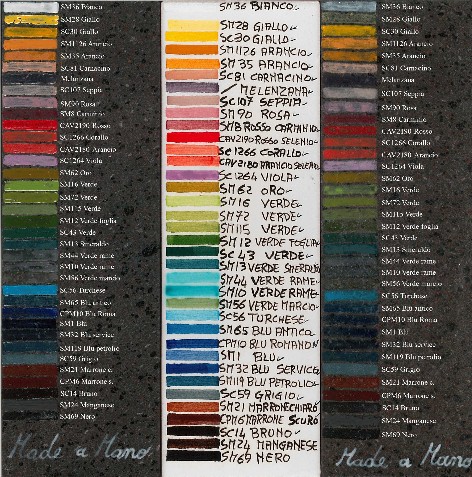 SM36 Bianco
SM28 Giallo
SC30 Giallo
SM1126 Arancio
SM35 Arancio
SC81 Carnacino
Melanzana
SC107 Seppia
SM90 Rosa
SM8 Carminio
CAV2190 Rosso
SC1266 Corallo
CAV2180 Arancio
SC1264 Viola
SM62 Oro
SM16 Verde
SM72 Verde
SM115 Verde
SM12 Verde foglia
SC43 Verde
SM13 Smeraldo
SM44 Verde rame
SM10 Verde rame
SM56 Verde marcio
SC56 Turchese
SM65 Blu antico
CPM10 Blu Roma
SM1 Blu
SM32 Blu service
SM119 Blu petrolio
SC59 Grigio
SM21 Marrone s.
CPM6 Marrone s.
SC14 Bruno
SM24 Manganese
SM69 Nero
Made a Mano.
SM36 BIANCO
SM28 GIALLO
SC30 GIALLO
SM1126 ARANCIO
SM35 ARANCIO
SC81 CARNACINO
MELENZANA
SC107 SEPPIA
SM90 ROSA
SM8 ROSSO CARMINIO
CAV2190 ROSSO SELENIO
SC1266 CORALLO
CAV2180 ARANCIO SELENIO
SC1264 VIOLA
SM62 ORO
SM16 VERDE
SM72 VERDE
SM115 VERDE
SM12 VERDE FOGLIA
SC43 VERDE
SM13 VERDE SMERALDO
SM44 VERDE RAME
SM10 VERDE RAME
SM56 VERDE MARCIO
SC56 TURCHESE
SM65 BLU ANTICO
CPM10 BLU ROMANO
SM1 BLU
SM32 BLU SERVICE
SM119 BLU PETROLIO
SC59 GRIGIO
SM21 MARRONE CHIARO
CPM6 MARRONE SCURO
SC14 BRUNO
SM24 MANGANESE
SM69 NERO
SM36 Bianco
SM28 Giallo
SC30 Giallo
SM1126 Arancio
SM35 Arancio
SC81 Carnacino
Melanzana
SC107 Seppia
SM90 Rosa
SM8 Carminio
CAV2190 Rosso
SC1266 Corallo
CAV2180 Arancio
SC1264 Viola
SM62 Oro
SM16 Verde
SM72 Verde
SM115 Verde
SM12 Verde foglia
SC43 Verde
SM13 Smeraldo
SM44 Verde rame
SM10 Verde rame
SM56 Verde marcio
SC56 Turchese
SM65 Blu antico
CPM10 Blu Roma
SM1 Blu
SM32 Blu service
SM119 Blu petrolio
SC59 Grigio
SM21 Marrone s.
CPM6 Marrone s.
SC14 Bruno
SM24 Manganese
SM69 Nero
Made a Mano